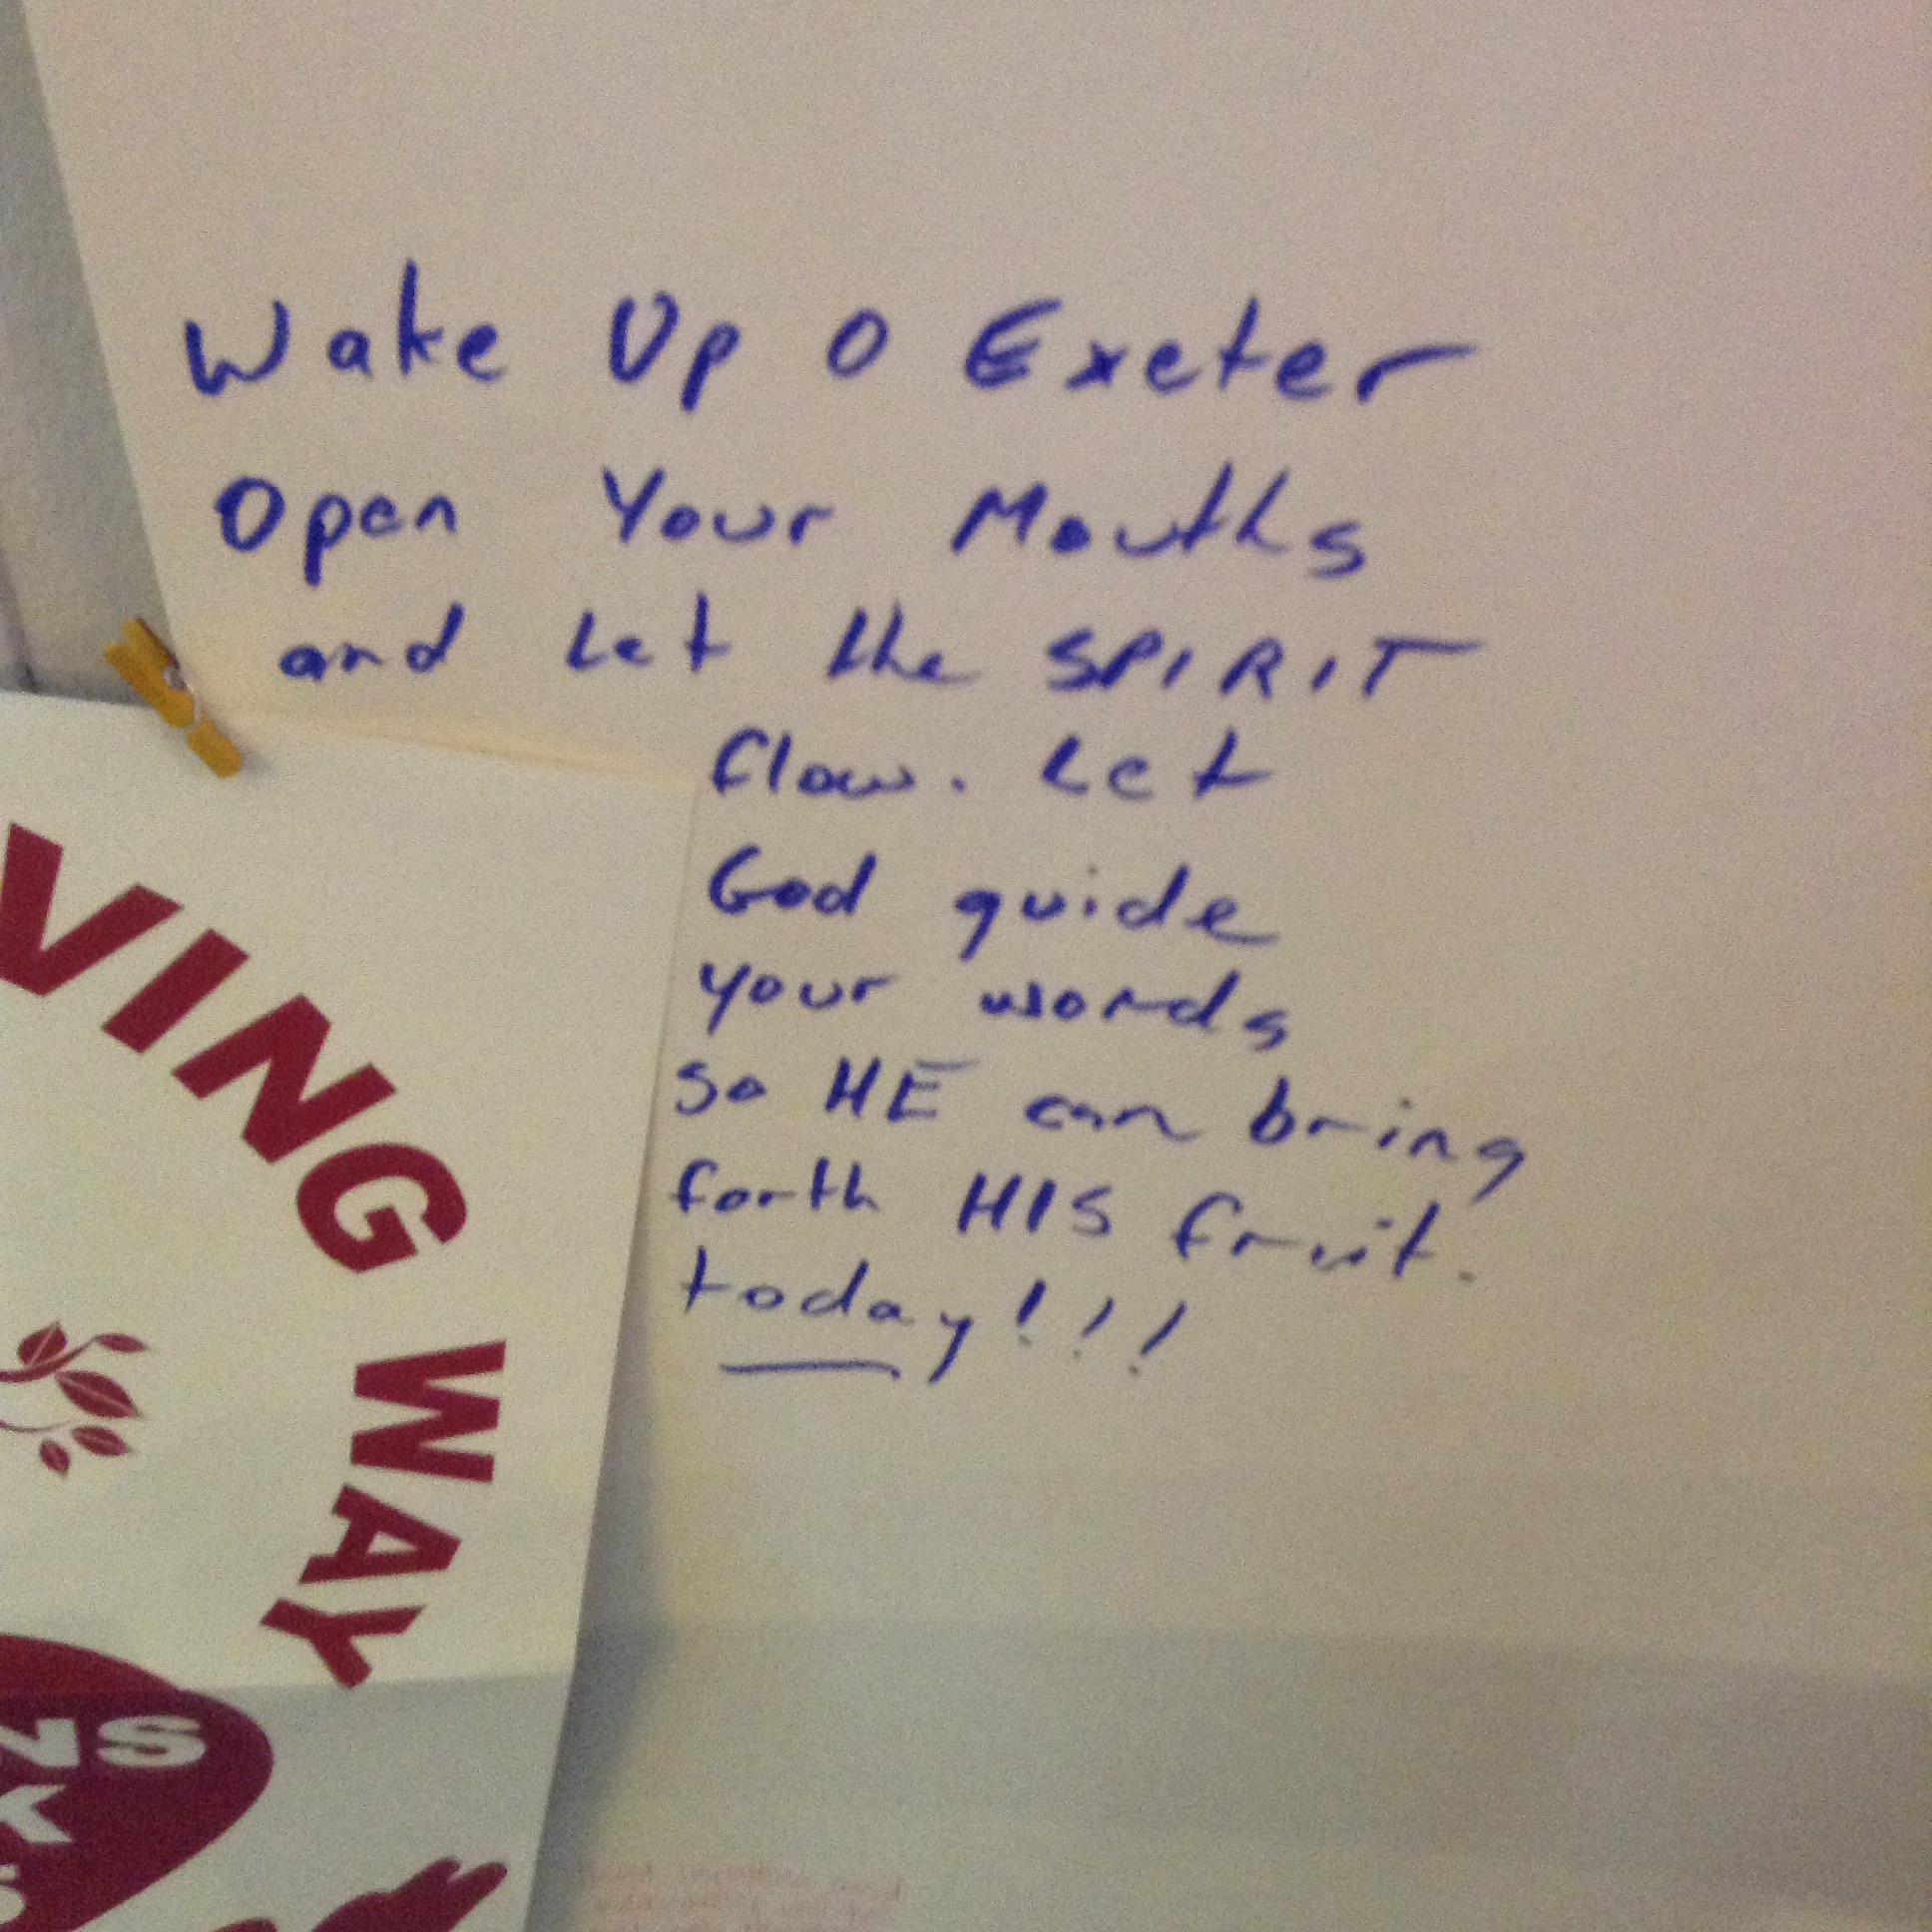 Wake Up O Exeter
Open Your Mouths
and Let the SPIRIT
flow. Let
God guide
your words
so HE can bring
forth HIS fruit.
today!!!
VING WAY
NS
K